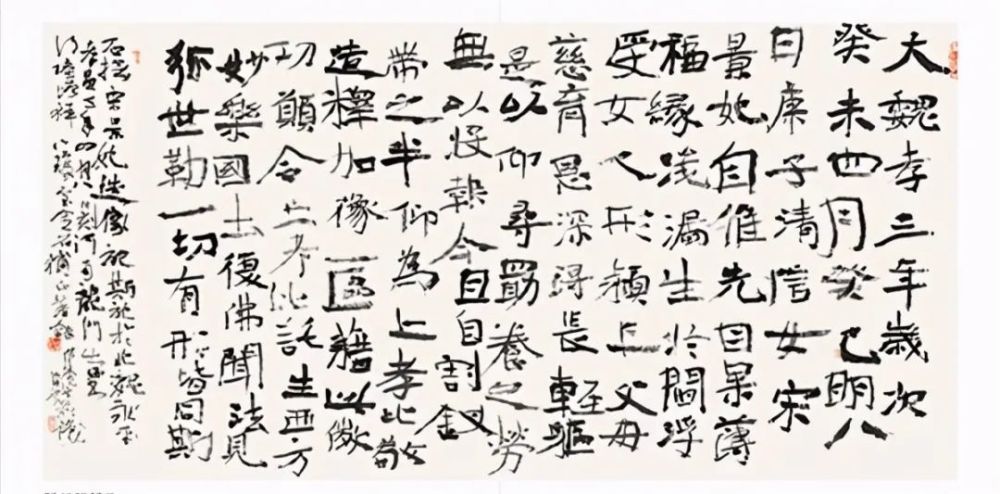 大魏孝三年歲次
癸未四月癸巳明八
日庚子清信女宋
景妃自惟先因果薄
福緣浅漏生於閻浮
受女人形頼上父母
慈育恩深得長軽軀
是以仰尋劬養之勞
無以投報今自自割釵
帶之半仰為亡考比敬
造釋加像一區藉此微
功願令亡考比託生西方
妙樂國土復佛聞法見
弥世勒一切有形皆同斯
宋景妃造像記其記於北魏
年四月八刻河南龍門